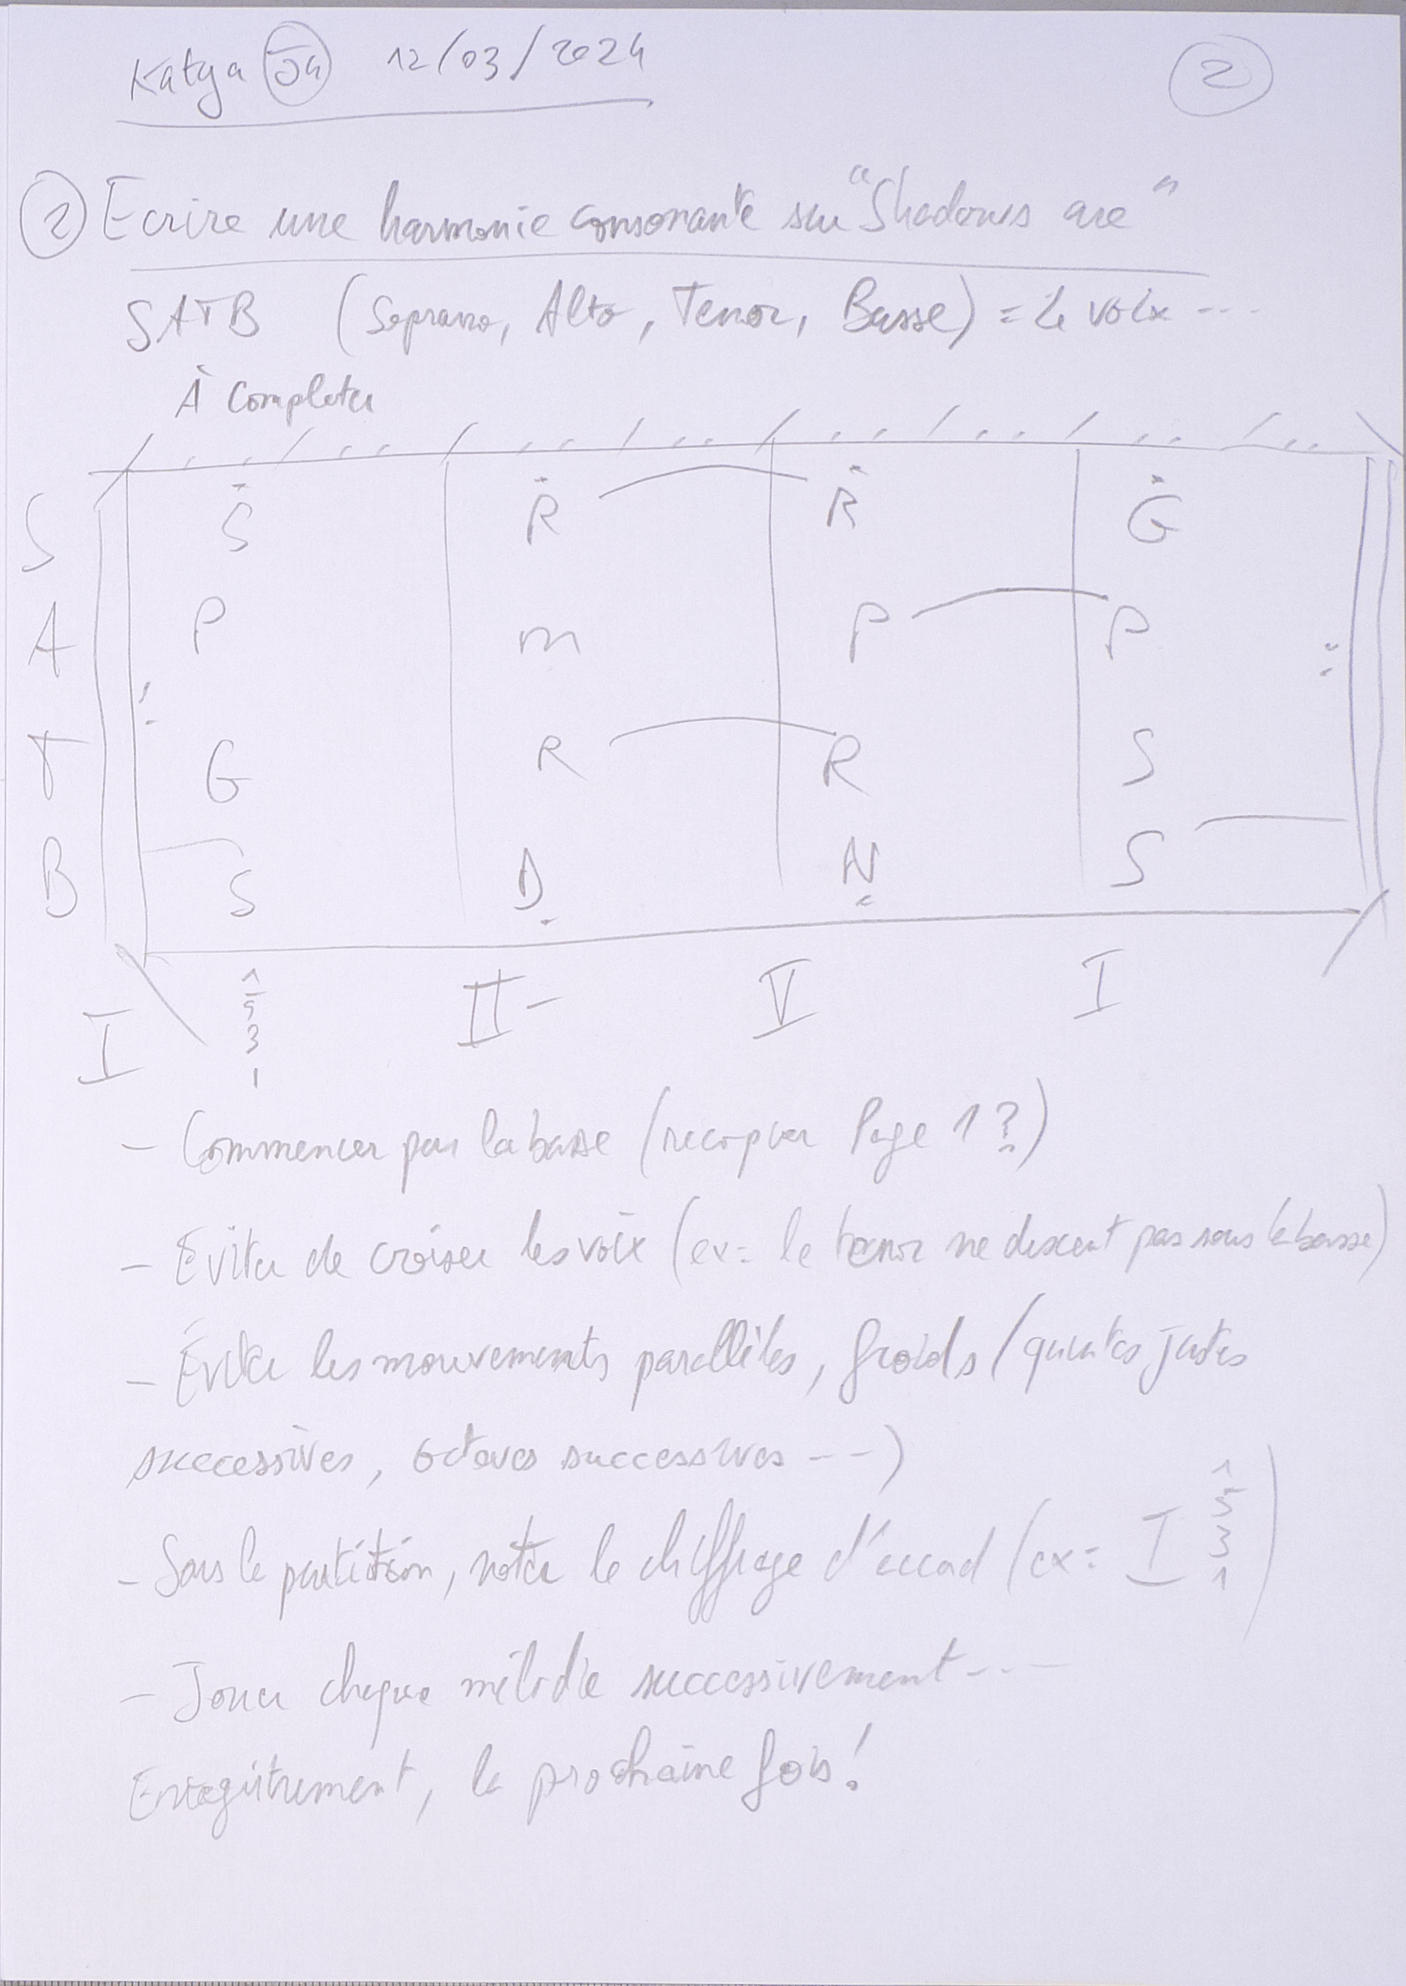 Katya 54 12/03/2024 2
2 Ecrire une harmonie consonante sur "Shadows are"
SATB (Soprano, Alto, Tenor, Basse) = 4 voix ...
À Completer
S Ṡ Ṙ Ṙ Ġ
A P m P P
T G R R S
B S Ḍ Ṇ S
I II- V I
1
5
3
1
- Commencer par la basse (recopier Page 1 ?)
- Eviter de croiser les voix (ex = le tenor ne descent pas sous la basse)
- Éviter les mouvements parallèles, froids (quintes justes
successives, octaves successives ---)
- Sous la partition, noter le chiffrage d'accord (ex = I 1 5 3 1)
- Jouer chaque mélodie successivement ---
Enregistrement, la prochaine fois !